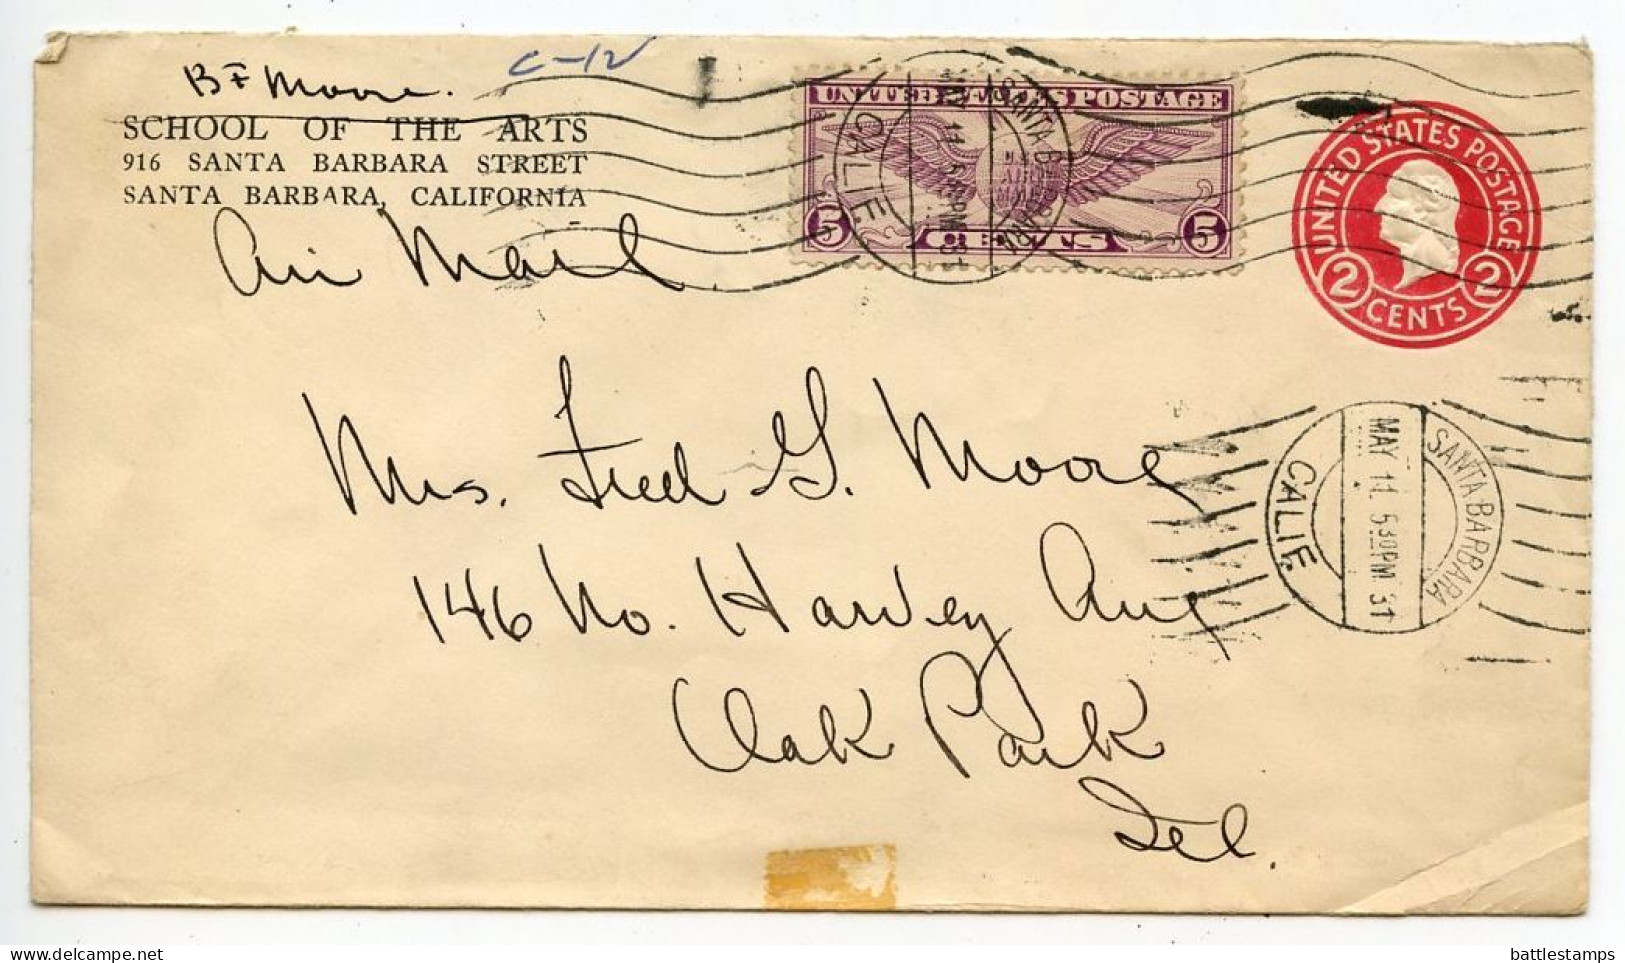 C-12
B F Moore.
SCHOOL OF THE ARTS
916 SANTA BARBARA STREET
SANTA BARBARA, CALIFORNIA
Air Mail
UNITED STATES POSTAGE
U.S.
AIR
MAIL
5 CENTS 5
SANTA BARBARA
MAY 11 530PM 31
CALIF.
UNITED STATES POSTAGE
2 CENTS 2
SANTA BARBARA
MAY 11 530PM 31
CALIF.
Mrs. Fred G. Moore
146 No. Harvey Ave
Oak Park
Ill.
delcampe.net
battlestamps